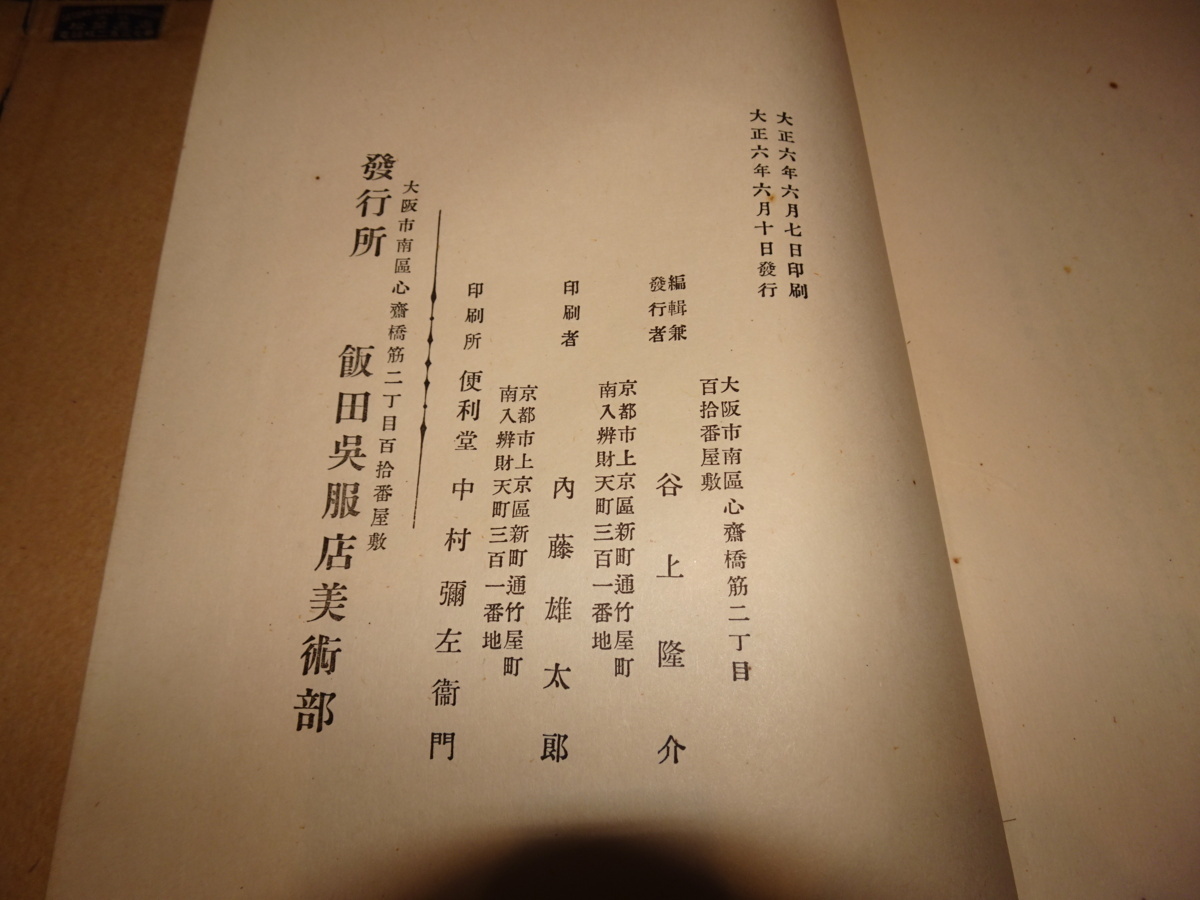 大正六年六月七日印刷
大正六年六月十日發行
大阪市南區心齋橋筋二丁目
百拾番屋敷
編輯兼
發行者
谷上隆介
京都市上京區新町通竹屋町
南入辨財天町三百一番地
印刷者
內藤雄太郎
京都市上京區新町通竹屋町
南入辨財天町三百一番地
印刷所
便利堂 中村彌左衞門
大阪市南區心齋橋筋二丁目百拾番屋敷
發行所 飯田吳服店美術部